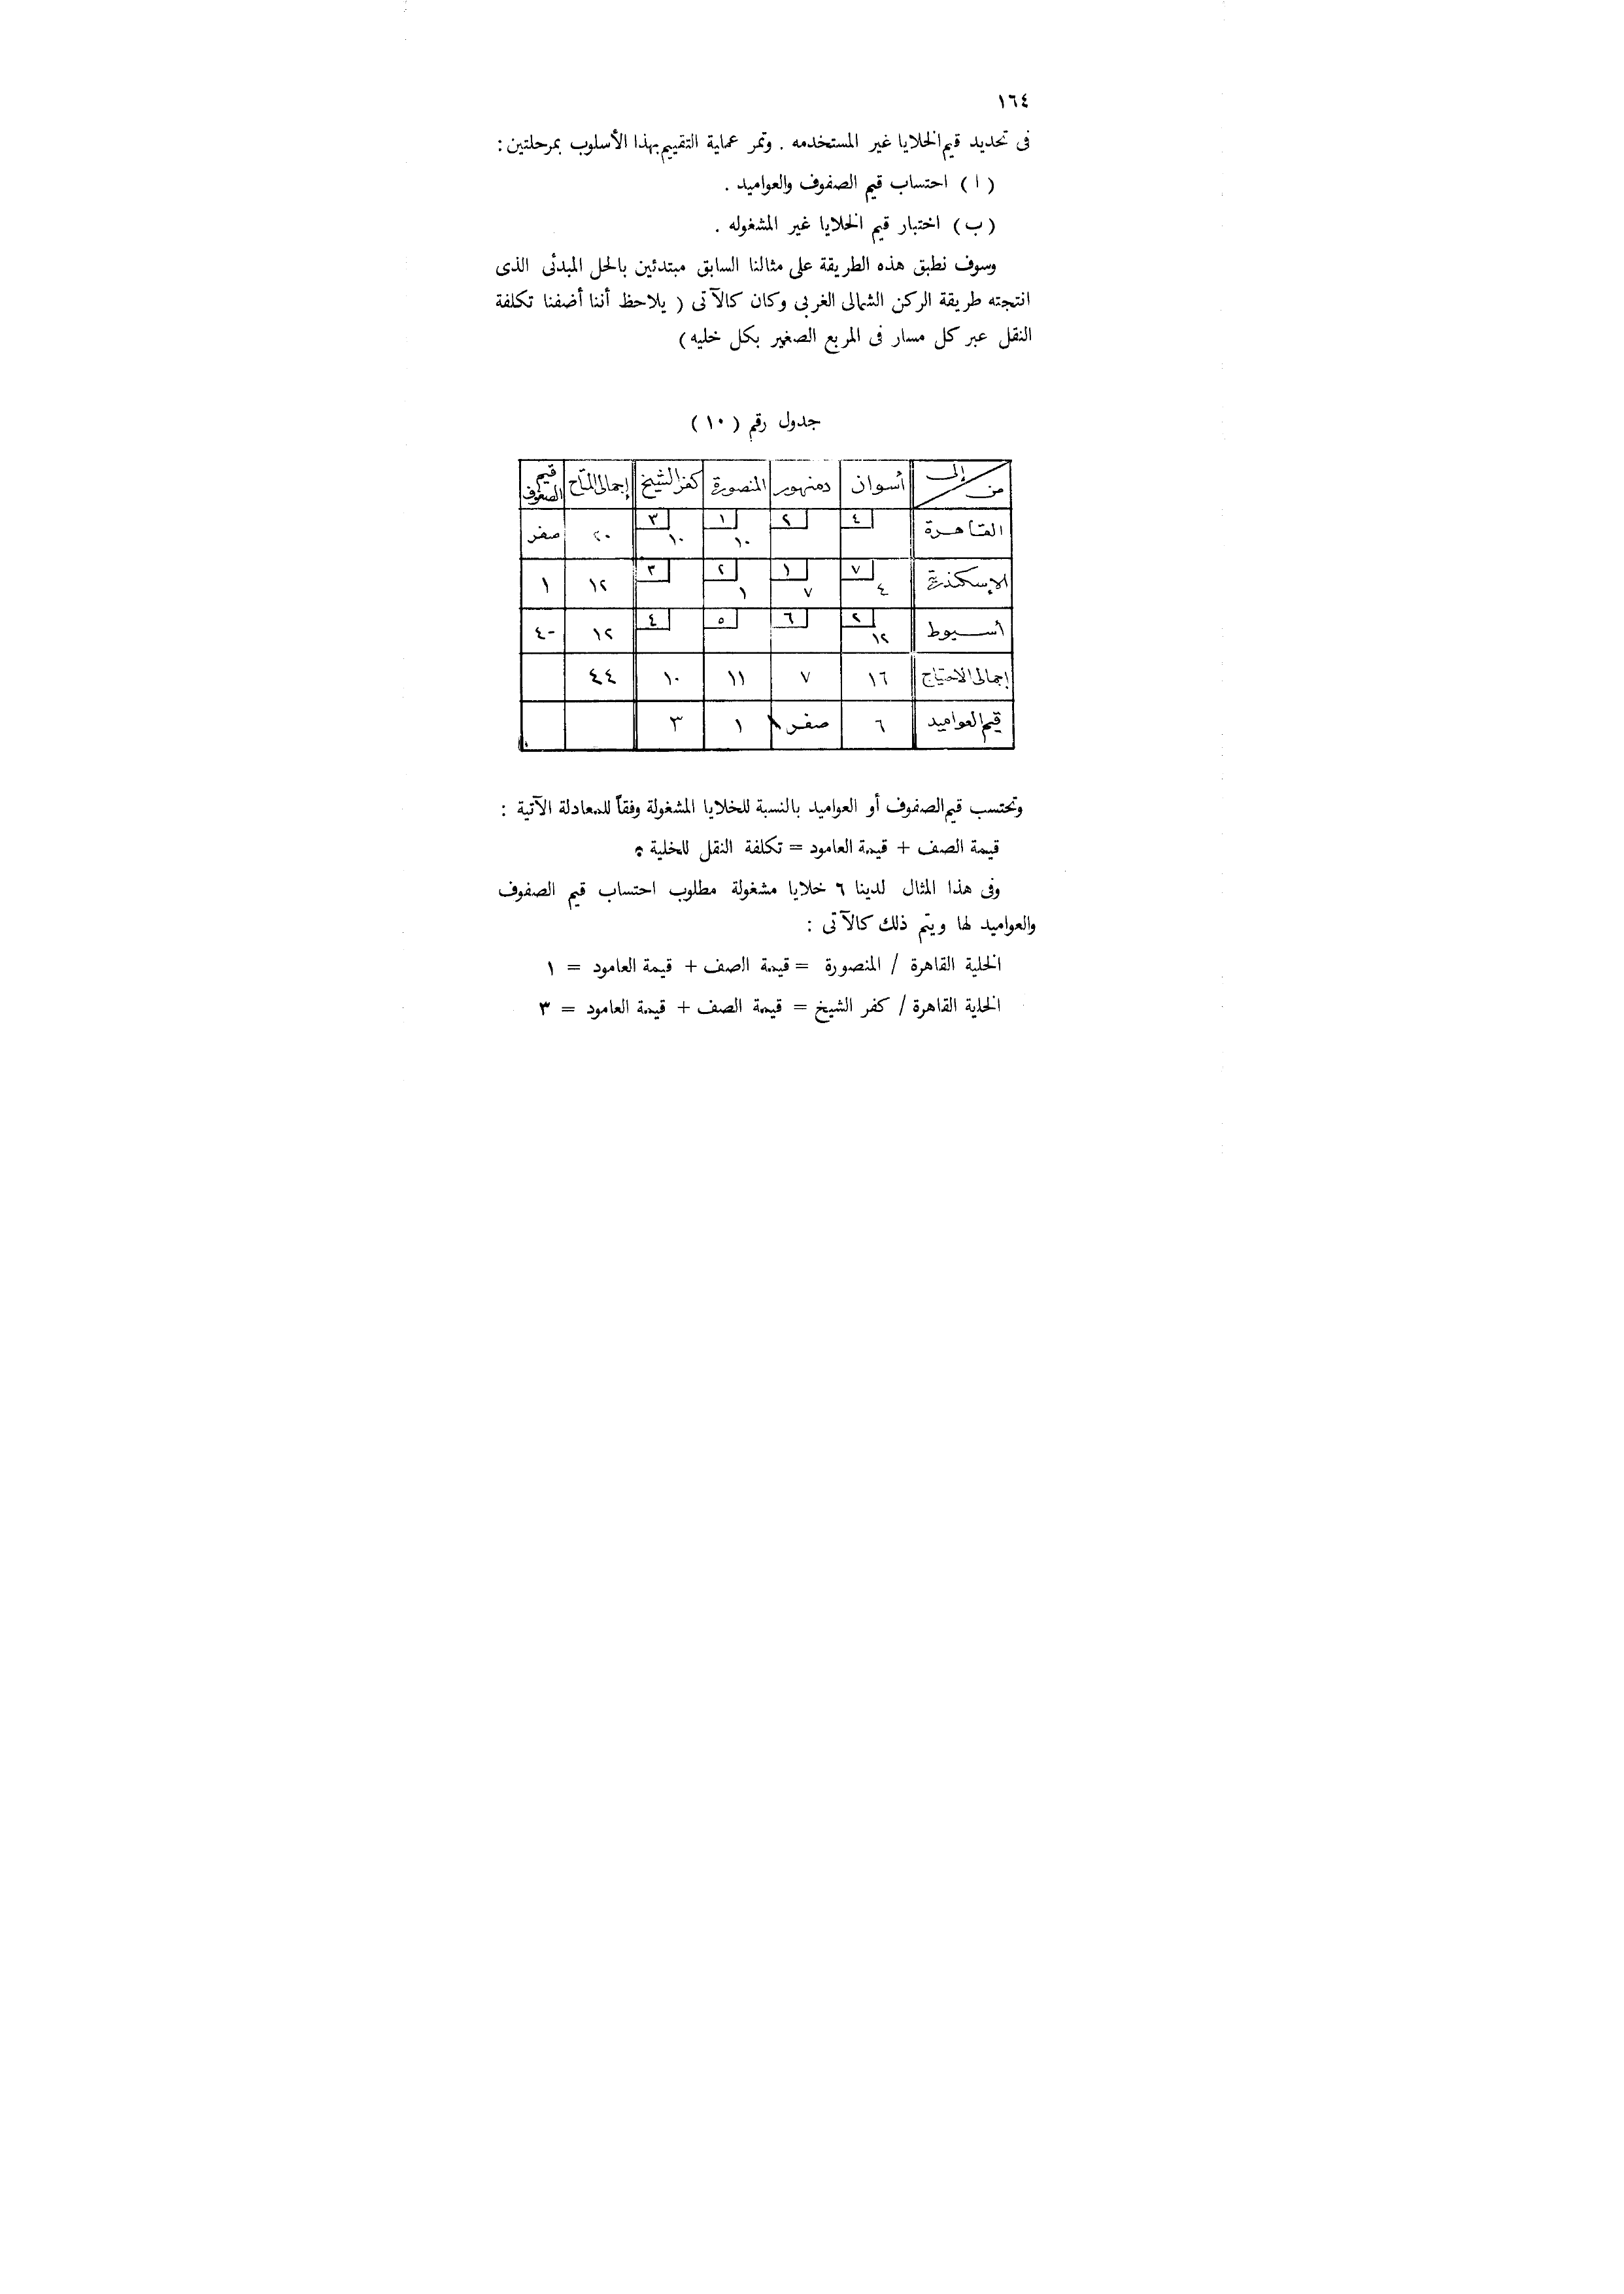 ١٦٤
فى تحديد قيم الخلايا غير المستخدمه . وتمر عملية التقييم بهذا الأسلوب بمرحلتين :
( ا ) احتساب قيم الصفوف والعواميد .
( ب ) اختبار قيم الخلايا غير المشغوله .
وسوف نطبق هذه الطريقة على مثالنا السابق مبتدئين بالحل المبدئى الذى
انتجته طريقة الركن الشمالى الغربى وكان كالآتى ( يلاحظ أننا أضفنا تكلفة
النقل عبر كل مسار فى المربع الصغير بكل خليه )
جدول رقم ( ١٠ )
إلى / من أسوان دمنهور المنصورة كفر الشيخ إجمالى المتاح قيم الصفوف
القاهرة ٤ ٢ ١ ١٠ ٣ ١٠ ٢٠ صفر
الإسكندرية ٧ ٤ ١ ٧ ٢ ١ ٣ ١٢ ١
أسيوط ٢ ١٢ ٦ ٥ ٤ ١٢ -٤
إجمالى الاحتياج ١٦ ٧ ١١ ١٠ ٤٤
قيم العواميد ٦ صفر ١ ٣
وتحتسب قيم الصفوف أو العواميد بالنسبة للخلايا المشغولة وفقاً للمعادلة الآتية :
قيمة الصف + قيمة العامود = تكلفة النقل للخلية .
وفى هذا المثال لدينا ٦ خلايا مشغولة مطلوب احتساب قيم الصفوف
والعواميد لها ويتم ذلك كالآتى :
الخلية القاهرة / المنصورة = قيمة الصف + قيمة العامود = ١
الخلية القاهرة / كفر الشيخ = قيمة الصف + قيمة العامود = ٣